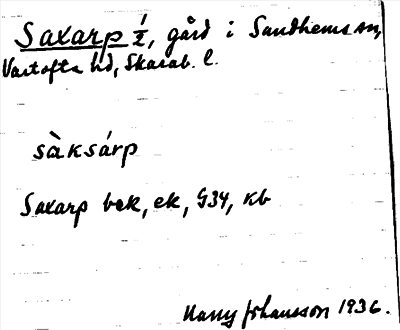 Saxarp 1/2, gård i Sandhems sn,
Vartofta hd, Skarab. l.
sàksárp
Saxarp bek, ek, G34, kb
Harry Johansson 1936.